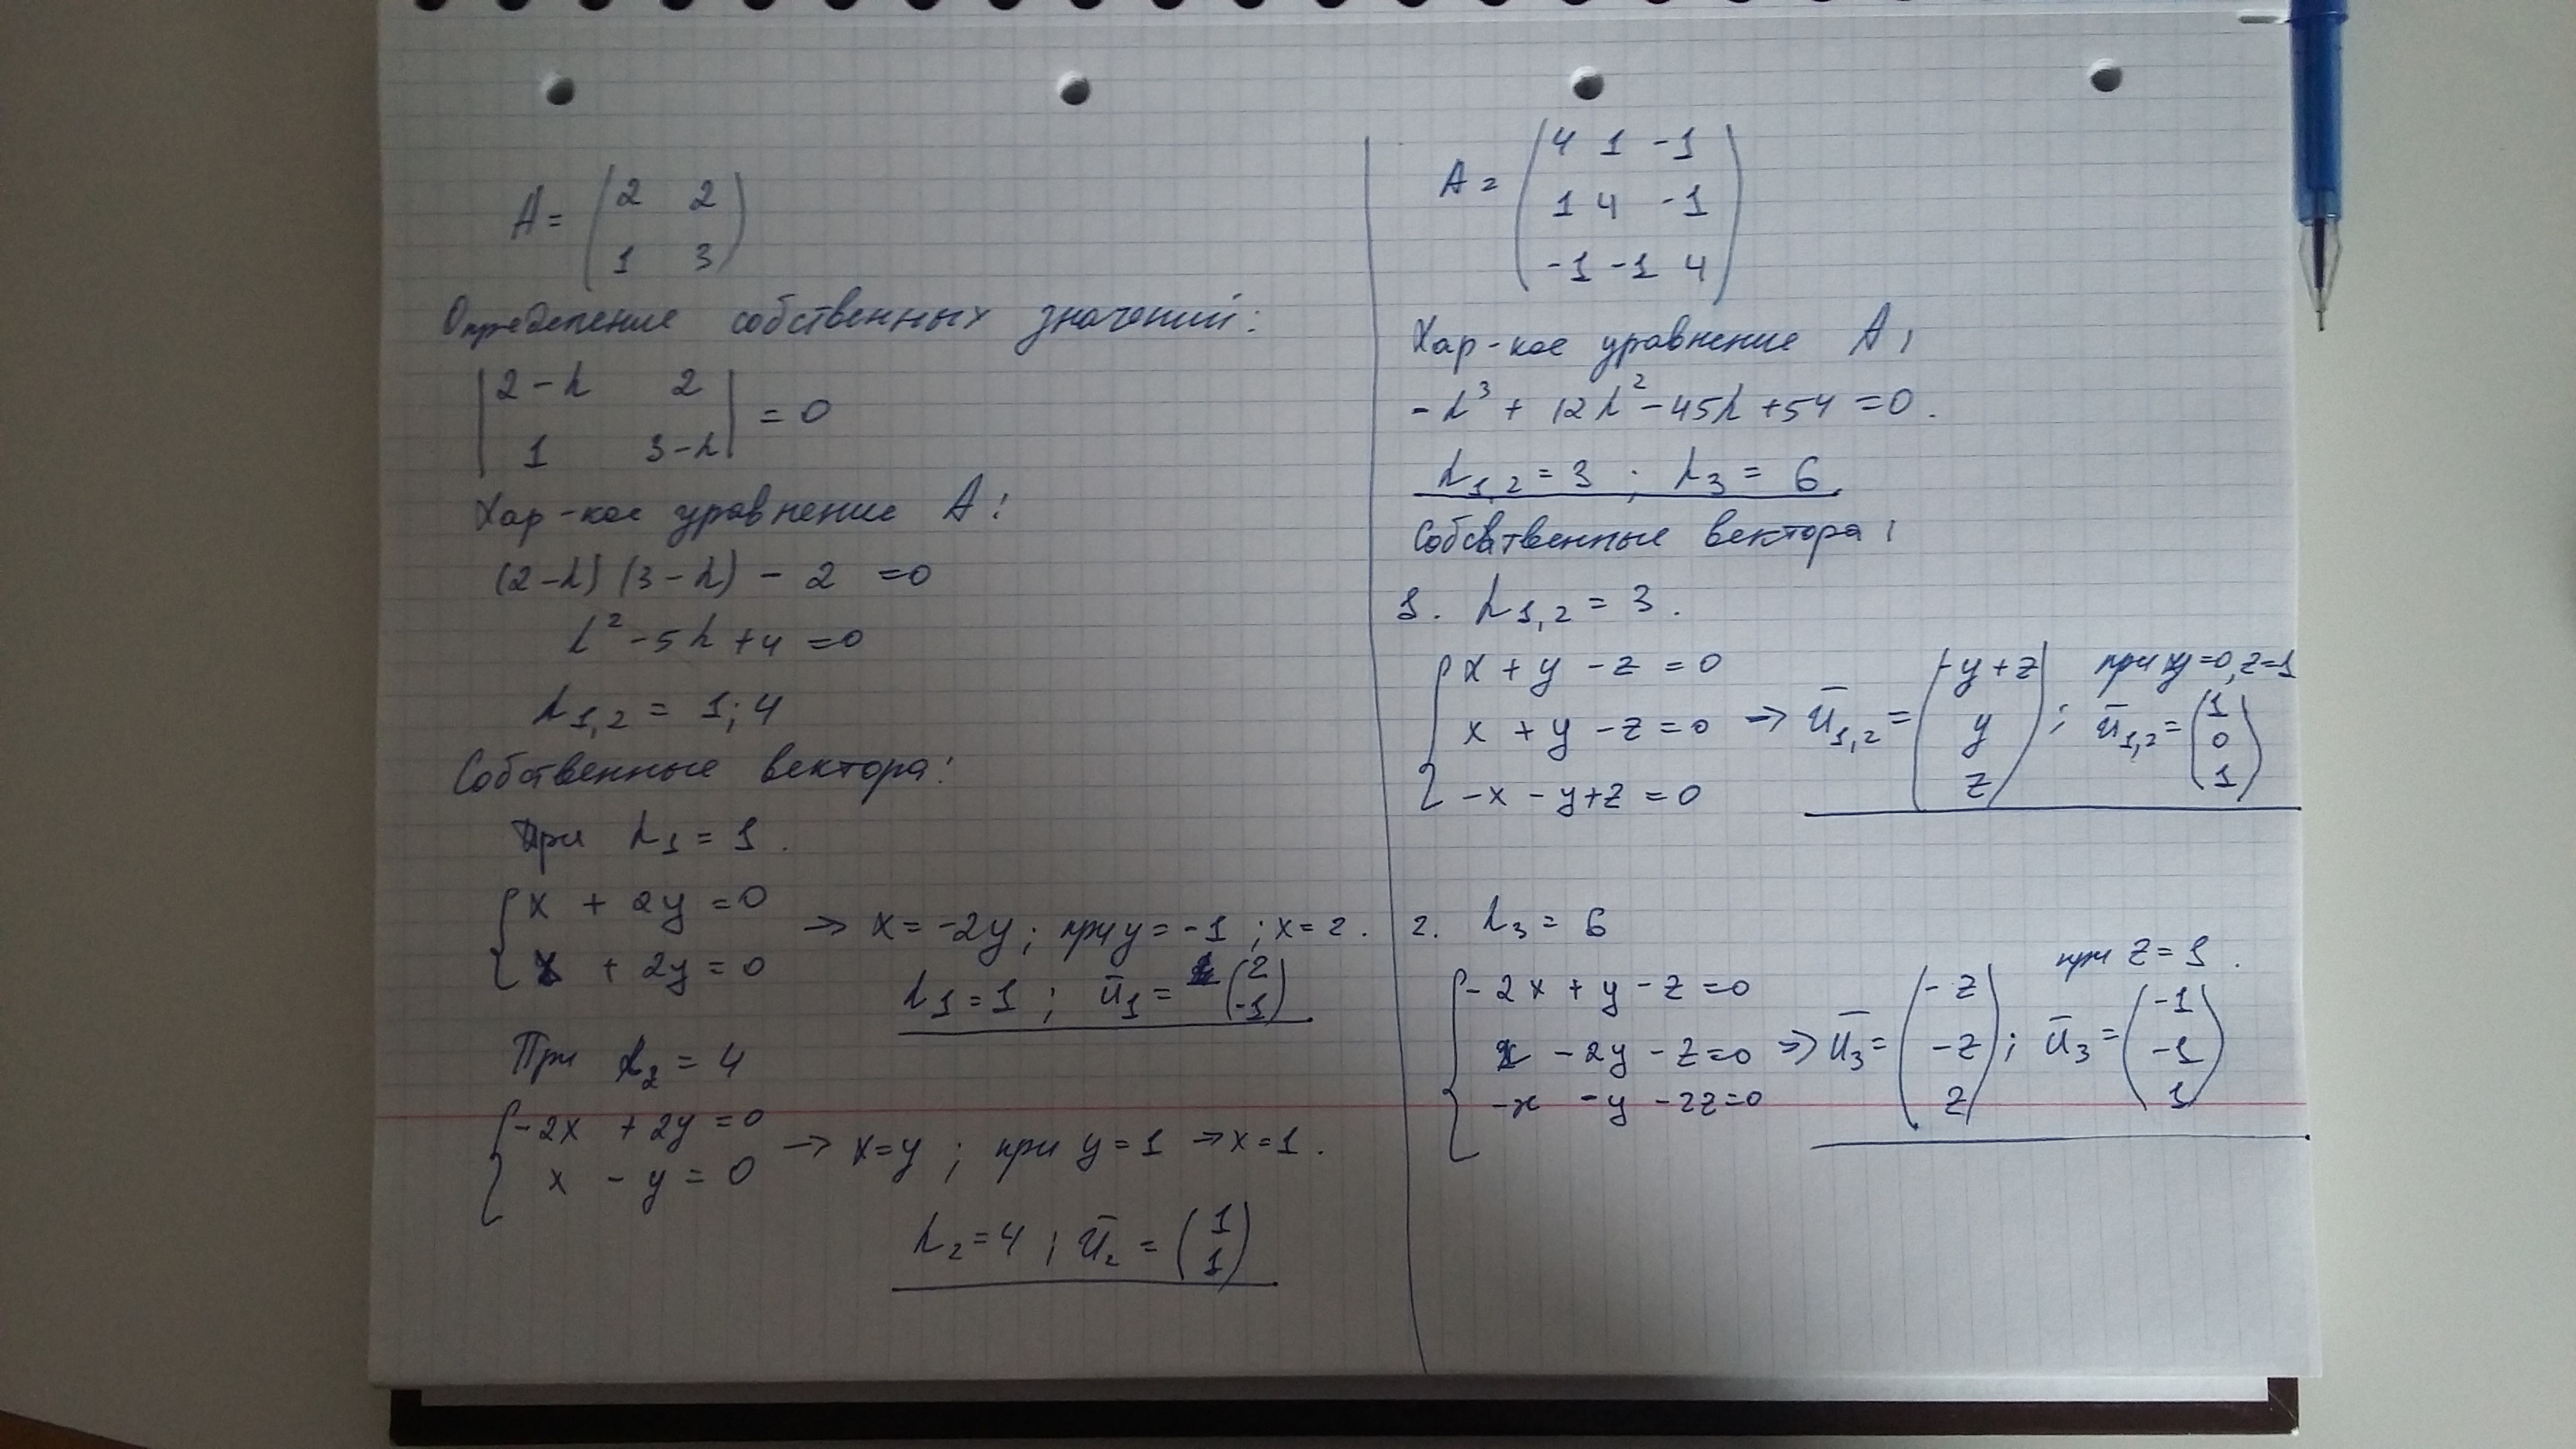 A = ( 2 2
1 3 )
Определение собственных значений:
| 2-λ 2 |
| 1 3-λ | = 0
Хар-кое уравнение A:
(2-λ)(3-λ) - 2 = 0
λ² - 5λ + 4 = 0
λ1,2 = 1; 4
Собственные вектора:
При λ1 = 1.
{ x + 2y = 0
x + 2y = 0 → x = -2y; при y = -1; x = 2.
λ1 = 1; ū1 = ( 2
-1 )
При λ2 = 4
{ -2x + 2y = 0
x - y = 0 → x = y; при y = 1 → x = 1.
λ2 = 4; ū2 = ( 1
1 )
A = ( 4 1 -1
1 4 -1
-1 -1 4 )
Хар-кое уравнение A:
-λ³ + 12λ² - 45λ + 54 = 0.
λ1,2 = 3; λ3 = 6
Собственные вектора:
1. λ1,2 = 3.
{ x + y - z = 0 при y = 0, z = 1
x + y - z = 0 → ū1,2 = ( -y+z y z ); ū1,2 = ( 1 0 1 )
-x - y + z = 0
2. λ3 = 6
{ -2x + y - z = 0 при z = 1.
x - 2y - z = 0 => ū3 = ( -z -z z ); ū3 = ( -1 -1 1 )
-x - y - 2z = 0